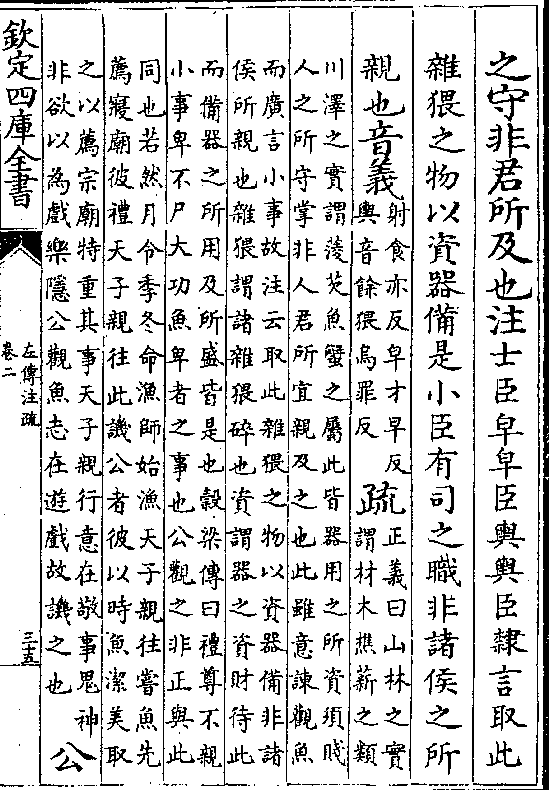 之守非君所及也注士臣皁皁臣輿輿臣隸言取此
雜猥之物以資器備是小臣有司之職非諸侯之所
親也音義
射食亦反皁才早反
輿音餘猥烏罪反
疏
正義曰山林之實
謂材木樵薪之類
川澤之實謂菱芡魚蟹之屬此皆器用之所資須賤
人之所守掌非人君所宜親及之也此雖意諫觀魚
而廣言小事故注云取此雜猥之物以資器備非諸
侯所親也雜猥謂諸雜猥碎也資謂器之資財待此
而備器之所用及所盛皆是也穀梁傳曰禮尊不親
小事卑不尸大功魚卑者之事也公觀之非正與此
同也若然月令季冬命漁師始漁天子親往嘗魚先
薦寢廟彼禮天子親往此譏公者彼以時魚潔美取
之以薦宗廟特重其事天子親行意在敬事鬼神
非欲以為戲樂隱公觀魚志在遊戲故譏之也
公
欽定四庫全書
左傳注疏
卷二
三十五